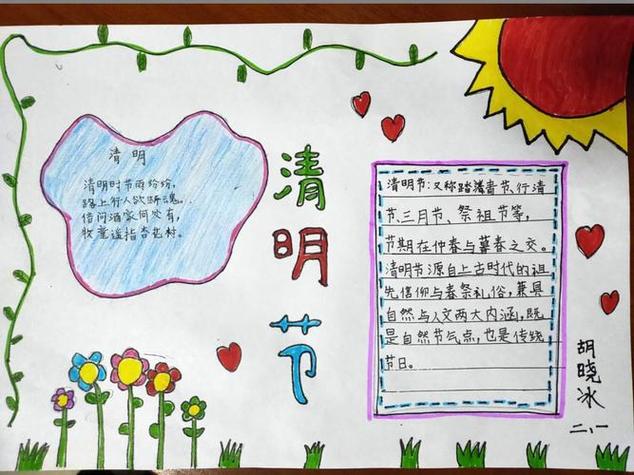 清明
清明时节雨纷纷,
路上行人欲断魂。
借问酒家何处有,
牧童遥指杏花村。
清明节
清明节:又称踏青节、行清
节、三月节、祭祖节等,
节期在仲春与暮春之交。
清明节源自上古时代的祖
先信仰与春祭礼俗,兼具
自然与人文两大内涵,既
是自然节气点,也是传统
节日。
胡晓冰
二、一